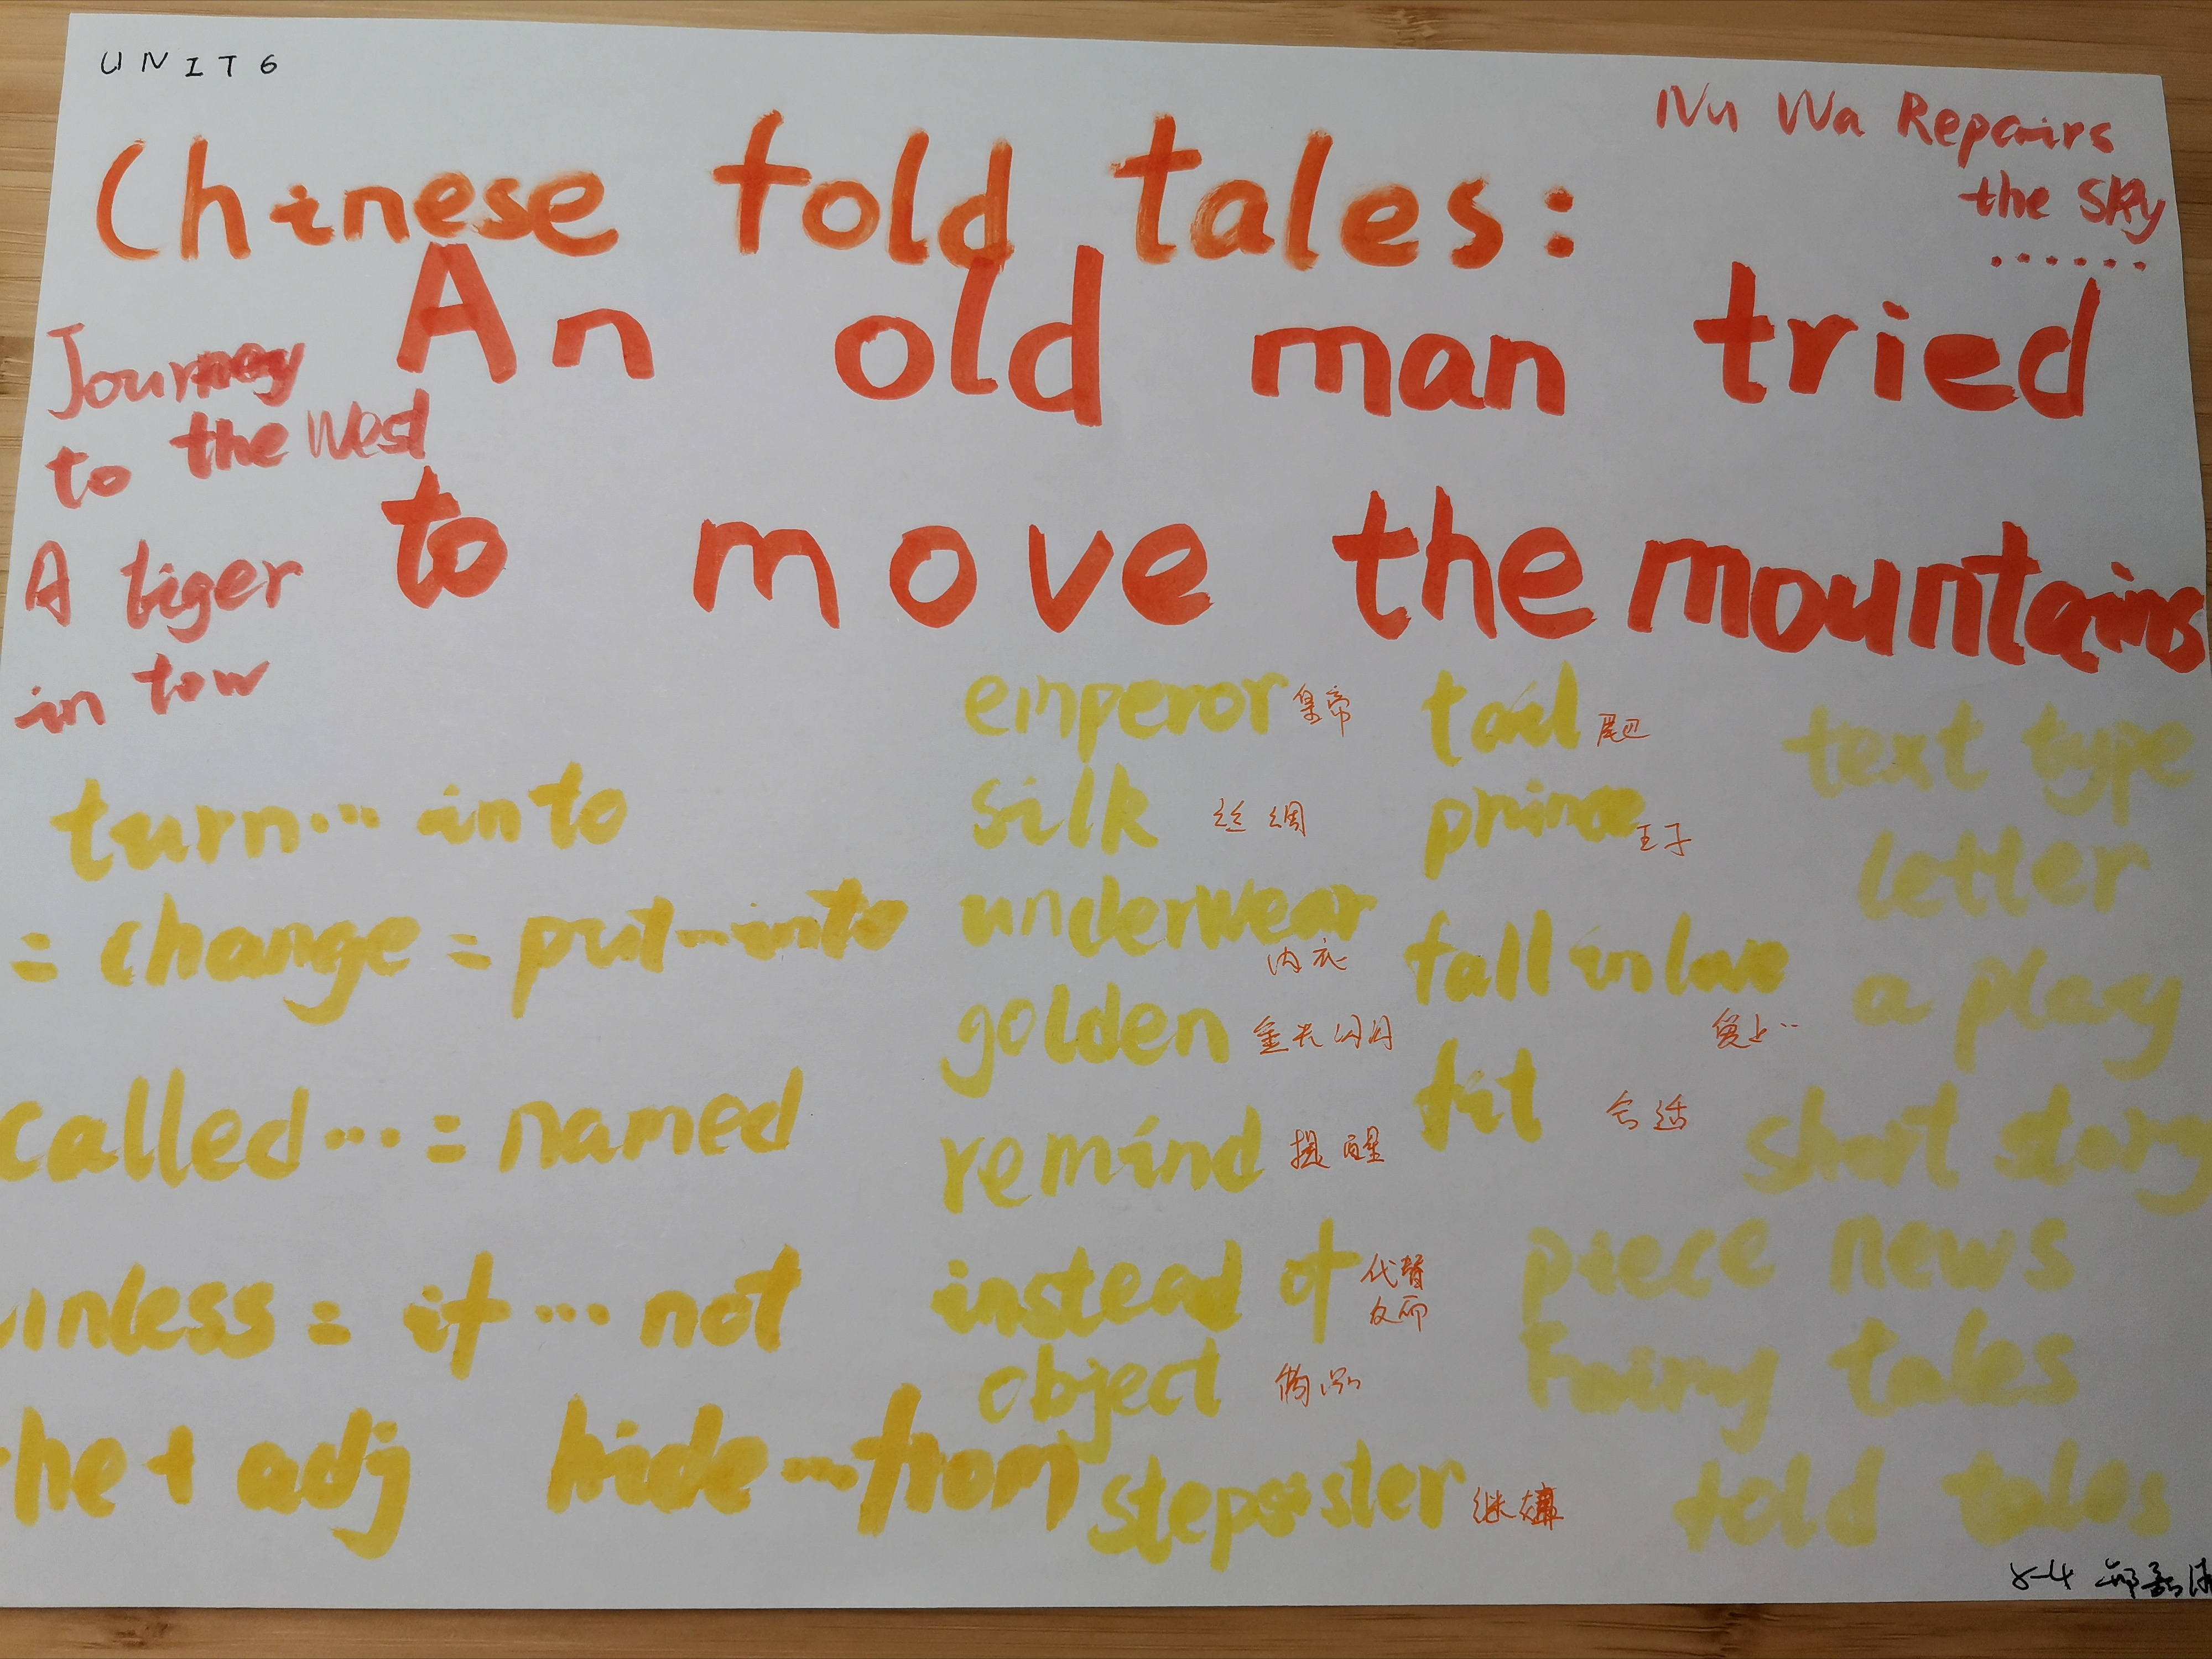 UNIT6
Nu Wa Repairs
the Sky
......
Chinese told tales:
An old man tried
to move the mountains
Journey
to the West
A tiger
in tow
turn... into
= change = put...into
called... = named
unless = if ... not
he + adj
hide...from
emperor 皇帝
silk 丝绸
underwear
内衣
golden 金光闪闪
remind 提醒
instead of 代替
反而
object 物品
stepsister
tail
prince 王子
fall in love
爱上...
fit 合适
text type
letter
a play
short story
piece news
Fairy tales
told tales
8-4